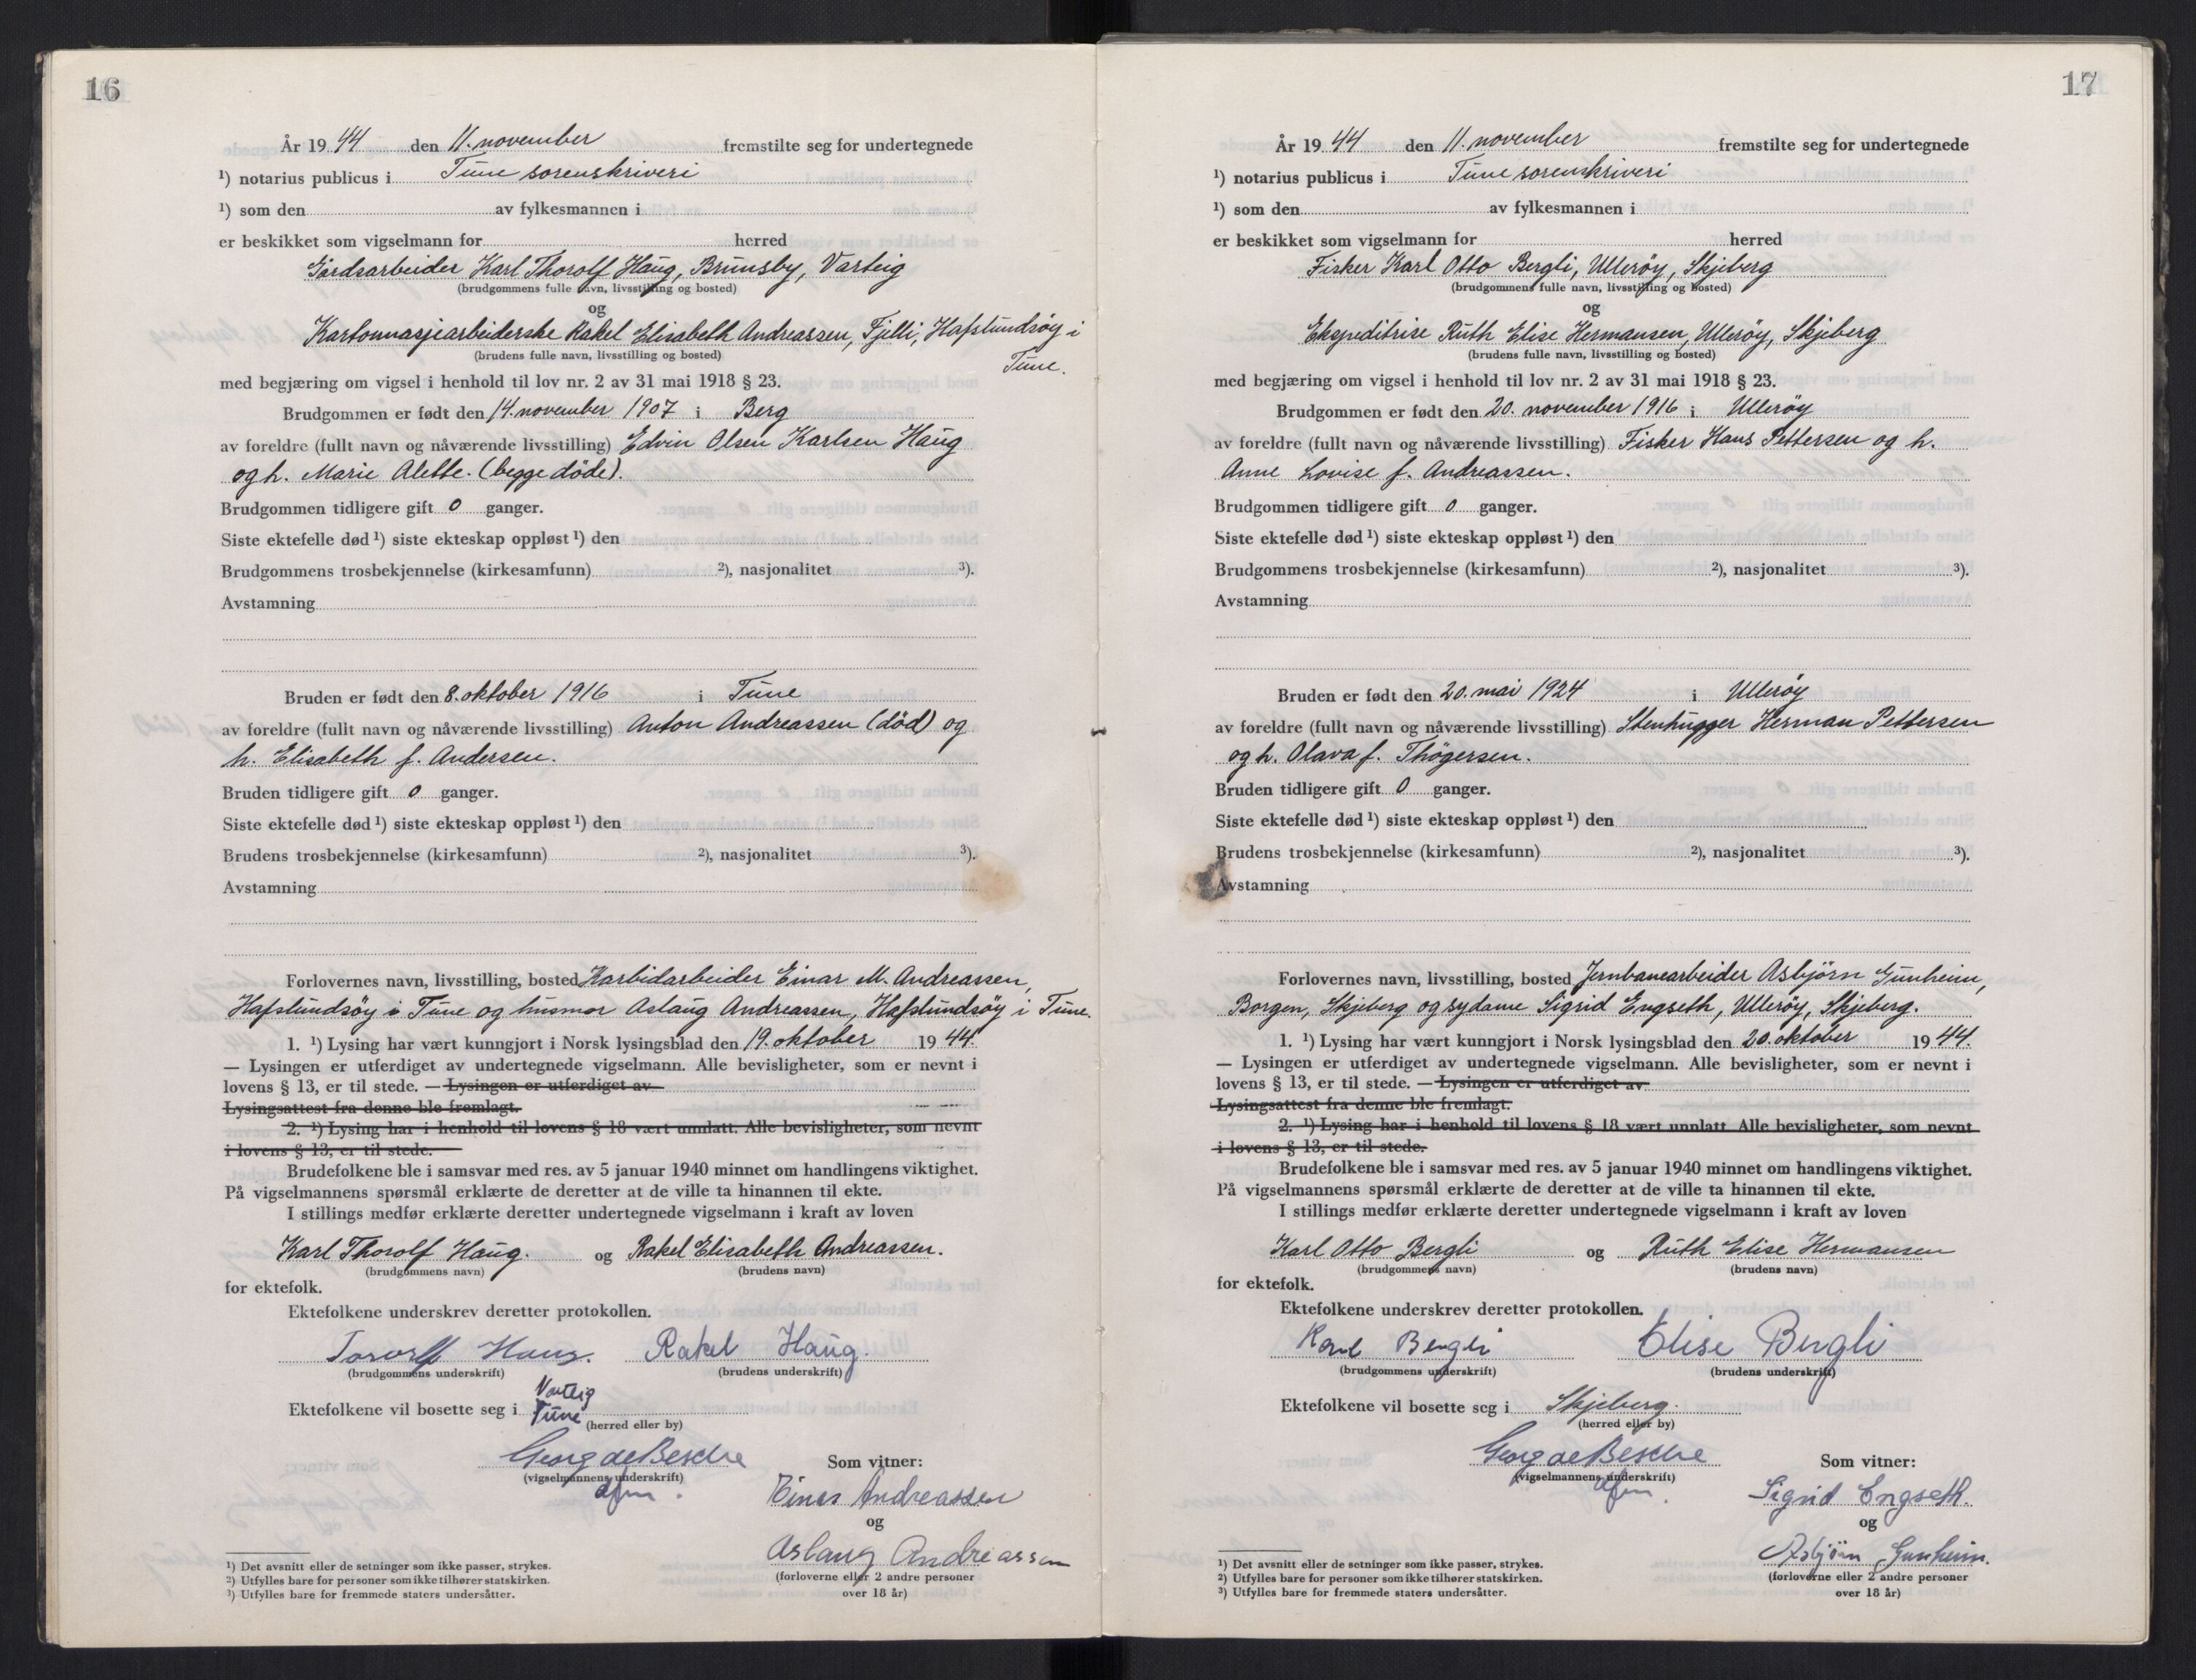 16
År 19 44 den 11. november fremstilte seg for undertegnede
¹) notarius publicus i Tune sorenskriveri
¹) som den av fylkesmannen i
er beskikket som vigselmann for herred
Gårdsarbeider Karl Thorolf Haug, Brunsby, Varteig
(brudgommens fulle navn, livsstilling og bosted)
og
Kartonnasjearbeiderske Rakel Elisabeth Andreassen, Fjelli, Hafslundsøy i
Tune.
(brudens fulle navn, livsstilling og bosted)
med begjæring om vigsel i henhold til lov nr. 2 av 31 mai 1918 § 23.
Brudgommen er født den 14. november 1907 i Berg
av foreldre (fullt navn og nåværende livsstilling) Edvin Olsen Karlsen Haug
og h. Marie Alette. (begge döde).
Brudgommen tidligere gift 0 ganger.
Siste ektefelle død ¹) siste ekteskap oppløst ¹) den
Brudgommens trosbekjennelse (kirkesamfunn) ²), nasjonalitet ³).
Avstamning
Bruden er født den 8. oktober 1916 i Tune
av foreldre (fullt navn og nåværende livsstilling) Anton Andreassen (död) og
h. Elisabeth f. Andersen.
Bruden tidligere gift 0 ganger.
Siste ektefelle død ¹) siste ekteskap oppløst ¹) den
Brudens trosbekjennelse (kirkesamfunn) ²), nasjonalitet ³).
Avstamning
Forlovernes navn, livsstilling, bosted Karbidarbeider Einar M. Andreassen,
Hafslundsöy i Tune og husmor Aslaug Andreassen, Hafslundsöy i Tune.
1. ¹) Lysing har vært kunngjort i Norsk lysingsblad den 19. oktober 19 44.
— Lysingen er utferdiget av undertegnede vigselmann. Alle bevisligheter, som er nevnt i
lovens § 13, er til stede. — Lysingen er utferdiget av
Lysingsattest fra denne ble fremlagt.
2. ¹) Lysing har i henhold til lovens § 18 vært unnlatt. Alle bevisligheter, som nevnt
i lovens § 13, er til stede.
Brudefolkene ble i samsvar med res. av 5 januar 1940 minnet om handlingens viktighet.
På vigselmannens spørsmål erklærte de deretter at de ville ta hinannen til ekte.
I stillings medfør erklærte deretter undertegnede vigselmann i kraft av loven
Karl Thorolf Haug. og Rakel Elisabeth Andreassen.
(brudgommens navn) (brudens navn)
for ektefolk.
Ektefolkene underskrev deretter protokollen.
Torolf Haug. Rakel Haug.
(brudgommens underskrift) (brudens underskrift)
Varteig
Ektefolkene vil bosette seg i Tune
(herred eller by)
Georg de Besche Som vitner:
(vigselmannens underskrift)
Einar Andreassen
og
Aslaug Andreassen
(forloverne eller 2 andre personer
over 18 år)
¹) Det avsnitt eller de setninger som ikke passer, strykes.
²) Utfylles bare for personer som ikke tilhører statskirken.
³) Utfylles bare for fremmede staters undersåtter.
17
År 19 44 den 11. november fremstilte seg for undertegnede
¹) notarius publicus i Tune sorenskriveri
¹) som den av fylkesmannen i
er beskikket som vigselmann for herred
Fisker Karl Otto Bergli, Ullerøy, Skjeberg
(brudgommens fulle navn, livsstilling og bosted)
og
Ekspeditrise Ruth Elise Hermansen, Ullerøy, Skjeberg
(brudens fulle navn, livsstilling og bosted)
med begjæring om vigsel i henhold til lov nr. 2 av 31 mai 1918 § 23.
Brudgommen er født den 20. november 1916 i Ullerøy
av foreldre (fullt navn og nåværende livsstilling) Fisker Hans Pettersen og h.
Anne Lovise f. Andreassen.
Brudgommen tidligere gift 0 ganger.
Siste ektefelle død ¹) siste ekteskap oppløst ¹) den
Brudgommens trosbekjennelse (kirkesamfunn) ²), nasjonalitet ³).
Avstamning
Bruden er født den 20. mai 1924 i Ullerøy
av foreldre (fullt navn og nåværende livsstilling) Stenhugger Herman Pettersen
og h. Olava f. Thögersen.
Bruden tidligere gift 0 ganger.
Siste ektefelle død ¹) siste ekteskap oppløst ¹) den
Brudens trosbekjennelse (kirkesamfunn) ²), nasjonalitet ³).
Avstamning
Forlovernes navn, livsstilling, bosted Jernbanearbeider Asbjörn Gunheim,
Borgen, Skjeberg og sydame Sigrid Engseth, Ulleröy, Skjeberg.
1. ¹) Lysing har vært kunngjort i Norsk lysingsblad den 20. oktober 19 44.
— Lysingen er utferdiget av undertegnede vigselmann. Alle bevisligheter, som er nevnt i
lovens § 13, er til stede. — Lysingen er utferdiget av
Lysingsattest fra denne ble fremlagt.
2. ¹) Lysing har i henhold til lovens § 18 vært unnlatt. Alle bevisligheter, som nevnt
i lovens § 13, er til stede.
Brudefolkene ble i samsvar med res. av 5 januar 1940 minnet om handlingens viktighet.
På vigselmannens spørsmål erklærte de deretter at de ville ta hinannen til ekte.
I stillings medfør erklærte deretter undertegnede vigselmann i kraft av loven
Karl Otto Bergli og Ruth Elise Hermansen
(brudgommens navn) (brudens navn)
for ektefolk.
Ektefolkene underskrev deretter protokollen.
Karl Bergli Elise Bergli
(brudgommens underskrift) (brudens underskrift)
Ektefolkene vil bosette seg i Skjeberg.
(herred eller by)
Georg de Besche Som vitner:
(vigselmannens underskrift)
Sigrid Engseth.
og
Asbjörn Gunheim.
(forloverne eller 2 andre personer
over 18 år)
¹) Det avsnitt eller de setninger som ikke passer, strykes.
²) Utfylles bare for personer som ikke tilhører statskirken.
³) Utfylles bare for fremmede staters undersåtter.